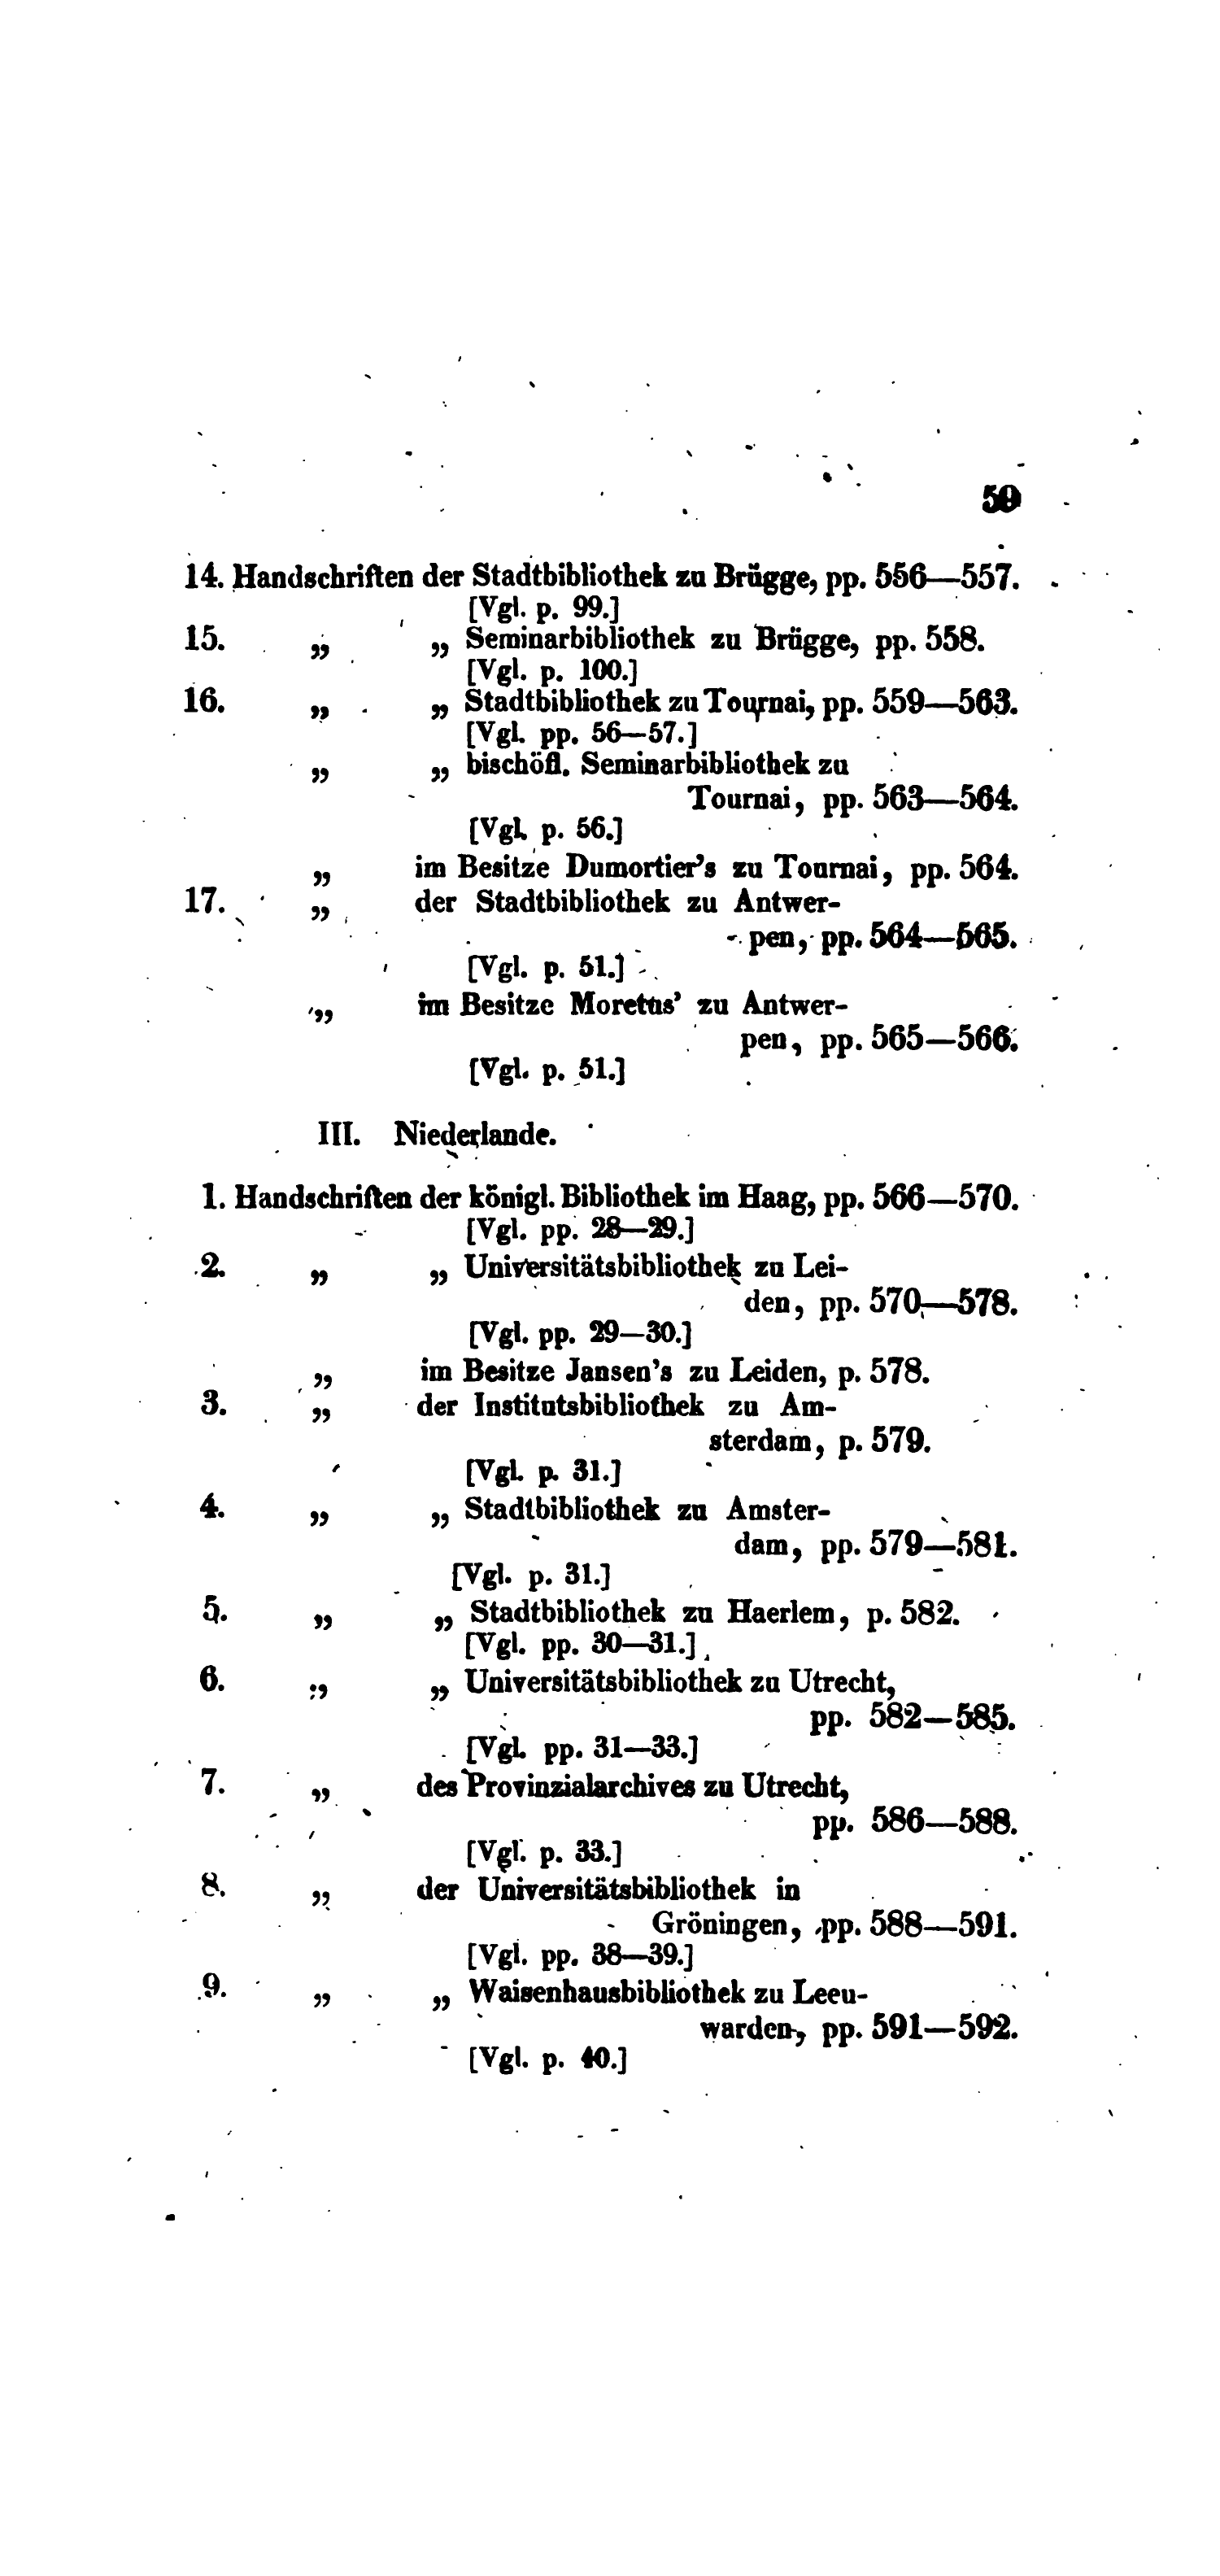 59
14. Handschriften der Stadtbibliothek zu Brügge, pp. 556—557.
[Vgl. p. 99.]
15. „ „ Seminarbibliothek zu Brügge, pp. 558.
[Vgl. p. 100.]
16. „ „ Stadtbibliothek zu Tournai, pp. 559—563.
[Vgl. pp. 56—57.]
„ „ bischöfl. Seminarbibliothek zu
Tournai, pp. 563—564.
[Vgl. p. 56.]
„ im Besitze Dumortier's zu Tournai, pp. 564.
17. „ der Stadtbibliothek zu Antwer-
pen, pp. 564—565.
[Vgl. p. 51.]
„ im Besitze Moretus' zu Antwer-
pen, pp. 565—566.
[Vgl. p. 51.]
III. Niederlande.
1. Handschriften der königl. Bibliothek im Haag, pp. 566—570.
[Vgl. pp. 28—29.]
2. „ „ Universitätsbibliothek zu Lei-
den, pp. 570—578.
[Vgl. pp. 29—30.]
„ im Besitze Jansen's zu Leiden, p. 578.
3. „ der Institutsbibliothek zu Am-
sterdam, p. 579.
[Vgl. p. 31.]
4. „ „ Stadtbibliothek zu Amster-
dam, pp. 579—581.
[Vgl. p. 31.]
5. „ „ Stadtbibliothek zu Haerlem, p. 582.
[Vgl. pp. 30—31.]
6. „ „ Universitätsbibliothek zu Utrecht,
pp. 582—585.
[Vgl. pp. 31—33.]
7. „ des Provinzialarchives zu Utrecht,
pp. 586—588.
[Vgl. p. 33.]
8. „ der Universitätsbibliothek in
Gröningen, pp. 588—591.
[Vgl. pp. 38—39.]
9. „ „ Waisenhausbibliothek zu Leeu-
warden, pp. 591—592.
[Vgl. p. 40.]